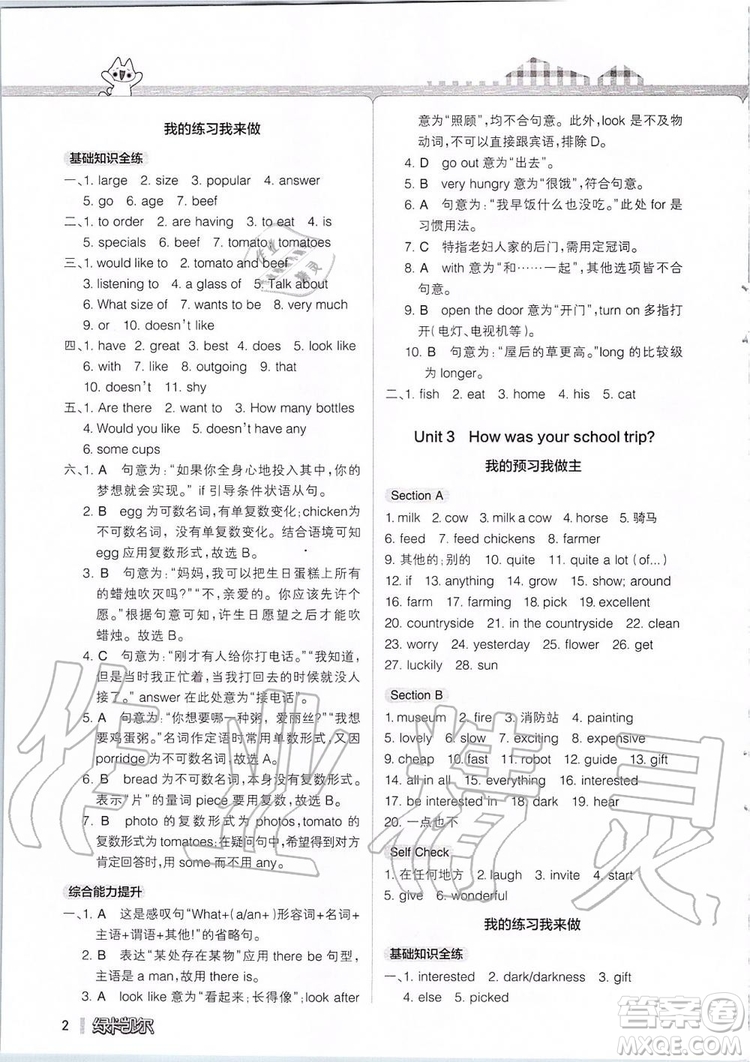 我的练习我来做
基础知识全练
一、1. large 2. size 3. popular 4. answer
5. go 6. age 7. beef
二、1. to order 2. are having 3. to eat 4. is
5. specials 6. beef 7. tomato, tomatoes
三、1. would like to 2. tomato and beef
3. listening to 4. a glass of 5. Talk about
6. What size of 7. wants to be 8. very much
9. or 10. doesn't like
四、1. have 2. great 3. best 4. look like
6. with 7. like 8. outgoing 9. that
10. doesn't 11. shy
五、1. Are there 2. want to 3. How many bottles
4. Would you like 5. doesn't have any
6. some cups
六、1. A 句意为：“如果你全身心地投入其中，你的
梦想就会实现。”if 引导条件状语从句。
2. B egg 为可数名词，有单复数变化；chicken为
不可数名词，没有单复数变化。结合语境可知
egg 应用复数形式，故选 B。
3. B 句意为：“妈妈，我可以把生日蛋糕上所有
的蜡烛吹灭吗？”“不，亲爱的。你可以先许个
愿。”根据句意可知，许生日愿望之后可以吹
蜡烛。故选 B。
4. C 句意为：“刚才有人给你打电话。”“我知道，
但是当时我正忙着，当我打过去时，没有人接
了。”answer 在此处意为“接电话”。
5. A 句意为：“你想要哪一种粥，爱丽丝？”“我想
要鸡蛋粥。”名词作定语时常用单数形式，又因
porridge 为不可数名词，故选 A。
6. B bread 为不可数名词，本身没有复数形式。
表示“片”的量词 piece 应用复数形式。
7. B photo 的复数形式为 photos, tomato 的
复数形式为 tomatoes；在疑问句中，希望得到对方
肯定回答时，用 some 而不用 any。
综合能力提升
一、1. A 这是感叹句“What+(a/an+)形容词+名词+
主语+谓语+其他!”的省略句。
2. B 表达“某处存在某物”应用 there be 句型，
主语是 a man，故用 is。
3. A look like 意为“看起来；长得像”；look after
意为“照顾”，均不合句意。此外，look 是不及物
动词，不能直接跟宾语，排除 D。
4. D go out 意为“出去”。
5. B very hungry 意为“很饿”，符合句意。
6. A 句意为：“我早饭什么也没吃。”此处 for 是
习惯用法。
7. C 特指老妇人家的后门，需用定冠词。
8. A with 意为“和……一起”，其他选项皆不符
合句意。
9. B open the door 意为“开门”，turn on 多指打
开(电灯、电视机等)。
10. B 句意为：“屋后的草更高。”long 的比较级
为 longer。
二、1. fish 2. eat 3. home 4. his 5. cat
Unit 3 How was your school trip?
我的预习我做主
Section A
1. milk 2. cow 3. milk a cow 4. horse 5. 骑马
6. feed 7. feed chickens 8. farmer
9. 其他的；别的 10. quite 11. quite a lot (of...)
12. if 13. anything 14. grow 15. show; around
16. farm 17. farming 18. pick 19. excellent
20. countryside 21. in the countryside 22. clean
23. worry 24. yesterday 25. flower 26. get
27. luckily 28. sun
Section B
1. museum 2. fire 3. 消防站 4. painting
5. lovely 6. slow 7. exciting 8. expensive
9. cheap 10. fast 11. robot 12. guide 13. gift
14. all in all 15. everything 16. interested
17. be interested in 18. dark 19. hear
20. 一点也不
Self Check
1. 在任何地方 2. Friday 3. invite 4. same
5. give 6. wonderful
我的练习我来做
基础知识全练
一、1. interested 2. dark/darkness 3. gift
4. else 5. picked
2 绿卡凯尔
作业精灵
答案圈
MXQE.COM